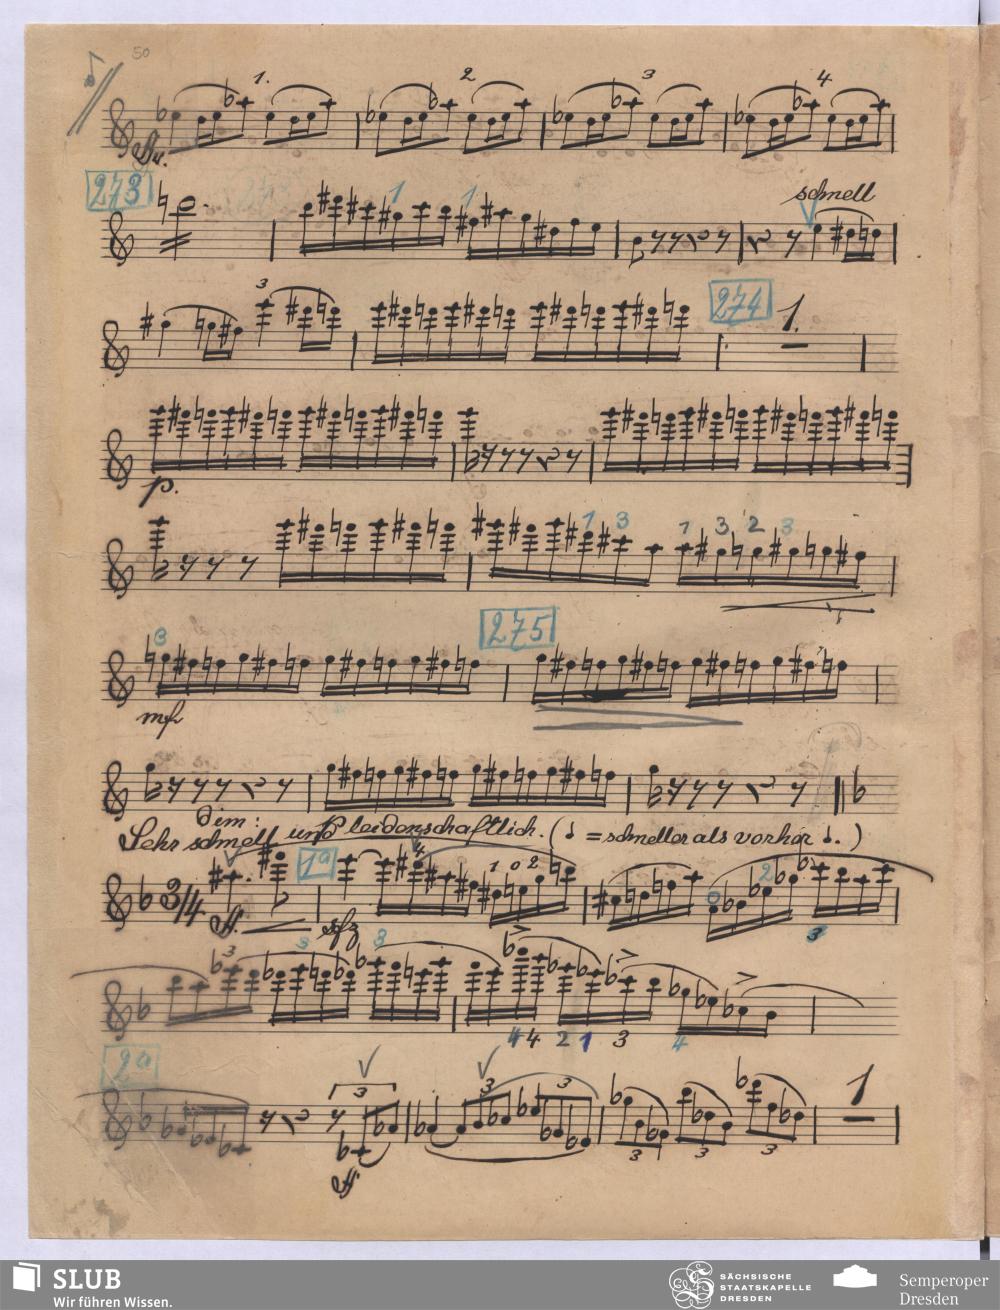 50
1. 2 3 4.
273
1 1 schnell
3
274
1.
p.
1 3 1 3 2 3
3
275
mf
dim:
Sehr schnell und leidenschaftlich. ( = schneller als vorher .)
3/4 1a 4 1 0 2 0 2
ff. sfz 3
3 3 3
4 4 2 1 3 4
2a 3 3 3 1
ff 3 3 3
SLUB
Wir führen Wissen.
SÄCHSISCHE
STAATSKAPELLE
DRESDEN
Semperoper
Dresden